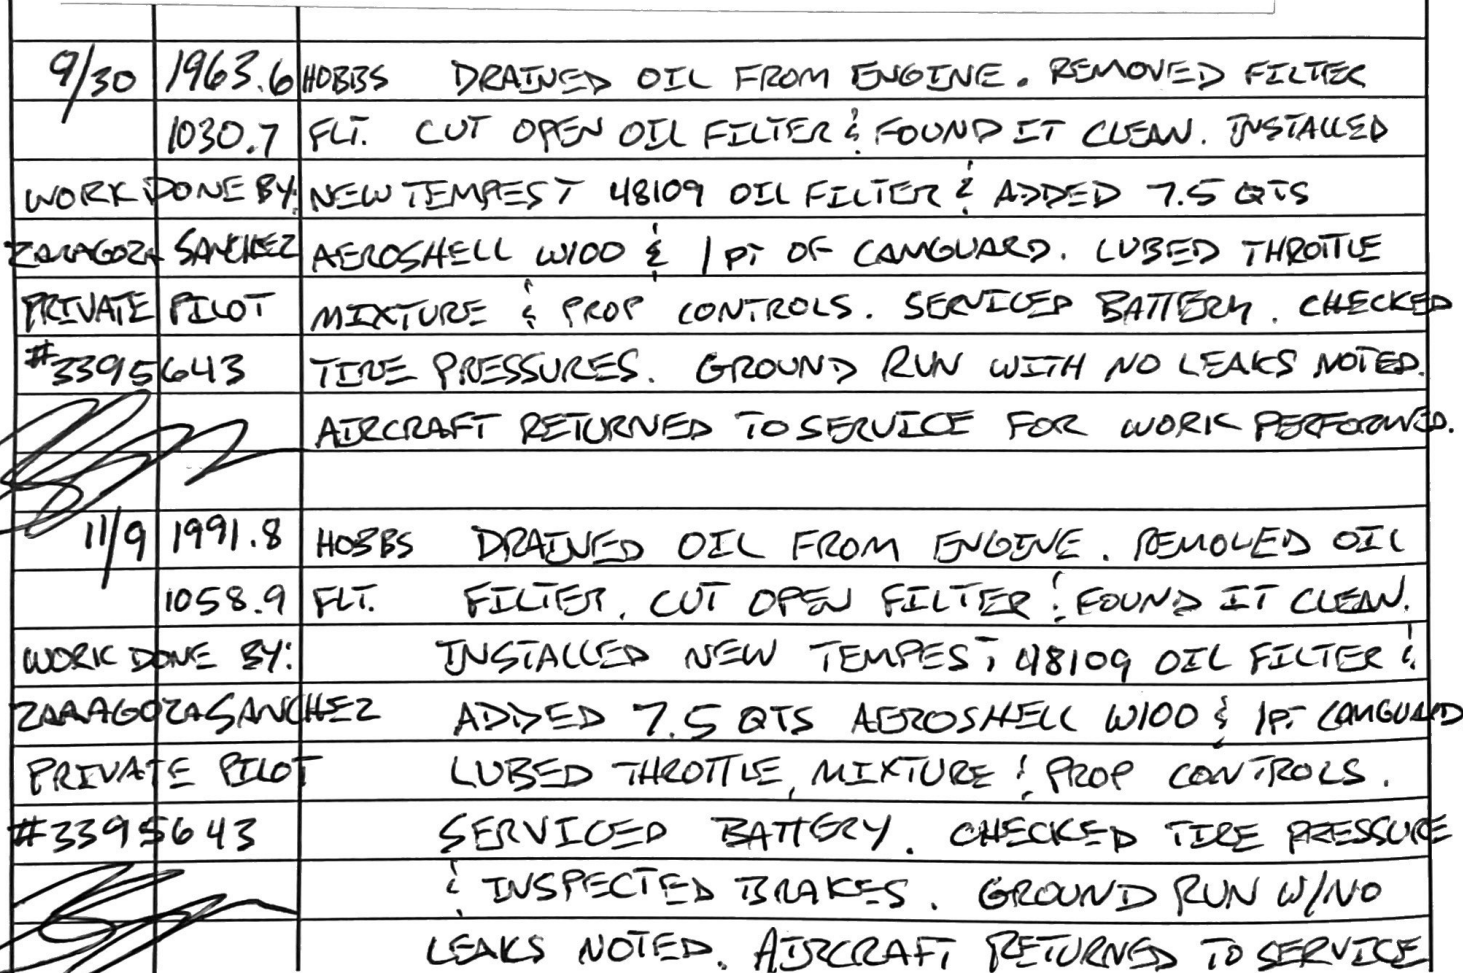 9/30 1963.6 HOBBS DRAINED OIL FROM ENGINE. REMOVED FILTER
1030.7 FLT. CUT OPEN OIL FILTER & FOUND IT CLEAN. INSTALLED
WORK DONE BY: NEW TEMPEST 48109 OIL FILTER & ADDED 7.5 QTS
ZARAGOZA SANCHEZ AEROSHELL W100 & 1 PT OF CAMGUARD. LUBED THROTTLE
PRIVATE PILOT MIXTURE & PROP CONTROLS. SERVICED BATTERY. CHECKED
#3395643 TIRE PRESSURES. GROUND RUN WITH NO LEAKS NOTED.
AIRCRAFT RETURNED TO SERVICE FOR WORK PERFORMED.
11/9 1991.8 HOBBS DRAINED OIL FROM ENGINE. REMOVED OIL
1058.9 FLT. FILTER, CUT OPEN FILTER & FOUND IT CLEAN.
WORK DONE BY: INSTALLED NEW TEMPEST 48109 OIL FILTER &
ZARAGOZA SANCHEZ ADDED 7.5 QTS AEROSHELL W100 & 1 PT CAMGUARD
PRIVATE PILOT LUBED THROTTLE, MIXTURE & PROP CONTROLS.
#3395643 SERVICED BATTERY. CHECKED TIRE PRESSURE
& INSPECTED BRAKES. GROUND RUN W/NO
LEAKS NOTED. AIRCRAFT RETURNED TO SERVICE